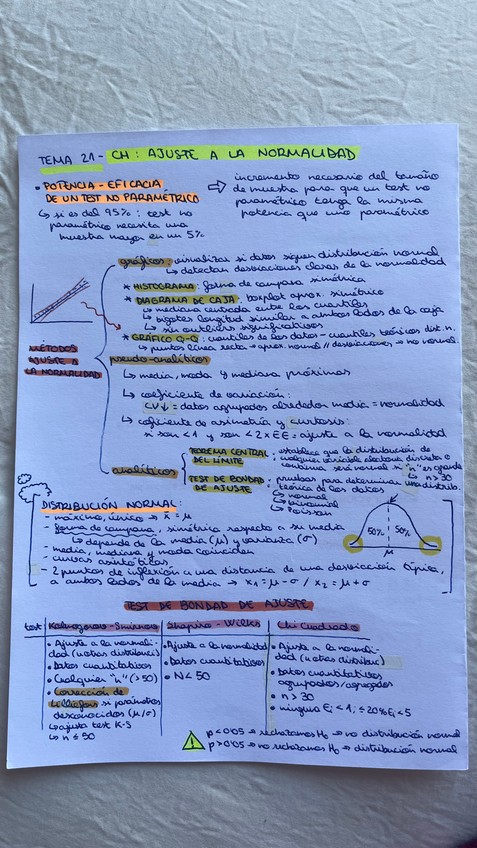 TEMA 21 - CH: AJUSTE A LA NORMALIDAD
• POTENCIA - EFICACIA
DE UN TEST NO PARAMÉTRICO
↳ si es del 95%: test no
paramétrico necesita una
muestra mayor en un 5%
⇒ incremento necesario del tamaño
de muestra para que un test no
paramétrico tenga la misma
potencia que uno paramétrico
MÉTODOS
AJUSTE A
LA NORMALIDAD
gráficos: visualizar si datos siguen distribución normal
↳ detectan desviaciones claras de la normalidad
* HISTOGRAMA: forma de campana simétrica
* DIAGRAMA DE CAJA: boxplot aprox. simétrico
↳ mediana centrada entre los cuartiles
↳ bigotes longitud similar a ambos lados de la caja
↳ sin outliers significativos
* GRÁFICO Q-Q: cuantiles de los datos - cuantiles teóricos dist. n.
↳ puntos línea recta → aprox. normal // desviaciones → no normal.
pseudo-analíticos
↳ media, moda y mediana próximas
↳ coeficiente de variación:
CV↓ = datos agrupados alrededor media = normalidad
↳ coeficiente de asimetría y curtosis:
si son <1 y son <2×EE = ajuste a la normalidad
analíticos
TEOREMA CENTRAL
DEL LÍMITE
: establece que la distribución de
cualquier variable aleatoria discreta o
continua será normal si "n" es grande
↳ n > 30
TEST DE BONDAD
DE AJUSTE
: pruebas para determinar distrib.
teórica de los datos
↳ normal
↳ binomial
↳ Poisson
DISTRIBUCIÓN NORMAL:
- máximo, único → x̄ = μ
- forma de campana, simétrica respecto a su media
↳ depende de la media (μ) y varianza (σ)
- media, mediana y moda coinciden
- curvas asintóticas
- 2 puntos de inflexión a una distancia de una desviación típica,
a ambos lados de la media → x₁ = μ - σ / x₂ = μ + σ
50% 50%
μ
TEST DE BONDAD DE AJUSTE
test Kolmogorov - Smirnov Shapiro - Wilks Chi Cuadrado
• Ajuste a la normali-
dad (u otras distribuci)
• Datos cuantitativos
• Cualquier "n" (>50)
• Corrección de
Lilliefors si parámetros
desconocidos (μ/σ)
↳ ajusta test K-S
↳ n ≤ 50
• Ajuste a la normalidad
• Datos cuantitativos
• N < 50
• Ajuste a la normali-
dad (u otras distribuc)
• Datos cuantitativos
agrupados/agregados
• n > 30
• ningua Ei < 1; ≤ 20% Ei < 5
! p < 0'05 → rechazamos H₀ → no distribución normal
p > 0'05 → no rechazamos H₀ → distribución normal